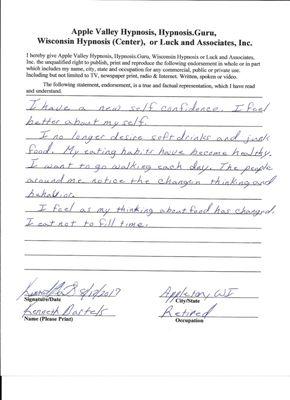 Apple Valley Hypnosis, Hypnosis.Guru,
Wisconsin Hypnosis (Center), or Luck and Associates, Inc.
I hereby give Apple Valley Hypnosis, Hypnosis.Guru, Wisconsin Hypnosis or Luck and Associates,
Inc. the unqualified right to publish, print and reproduce the following endorsement in whole or in part
which includes my name, city, state and occupation for any commercial, public or private use.
Including but not limited to TV, newspaper print, radio & Internet. Written, spoken or video.
The following statement, endorsement, is a true and factual representation, which I have read
and understand.
I have a new self confidence. I feel
better about my self.
I no longer desire soft drinks and junk
food. My eating habits have become healthy.
I want to go walking each day. The people
around me notice the change in thinking and
behavior.
I feel as my thinking about food has changed.
I eat not to fill time.
Appleton WI
Signature/Date
City/State
Kenneth Bartels
Retired
Name (Please Print)
Occupation